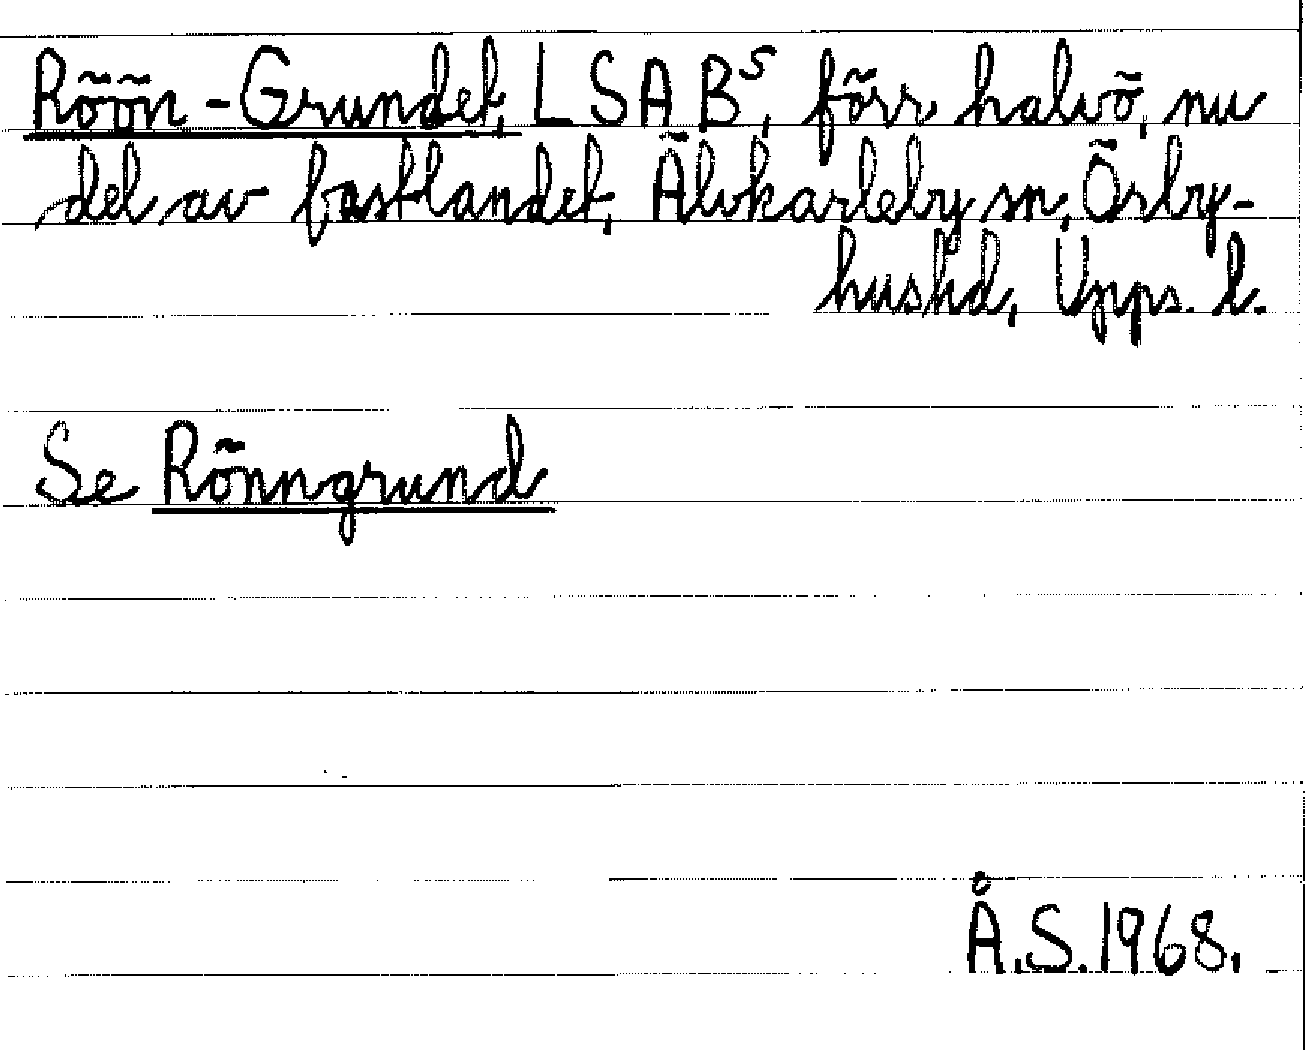 Röön-Grundet, L S A Bˢ, förr halvö, nu
del av fastlandet, Älvkarleby sn, Örby-
hushd, Upps. l.
Se Rönngrund
Å.S. 1968.